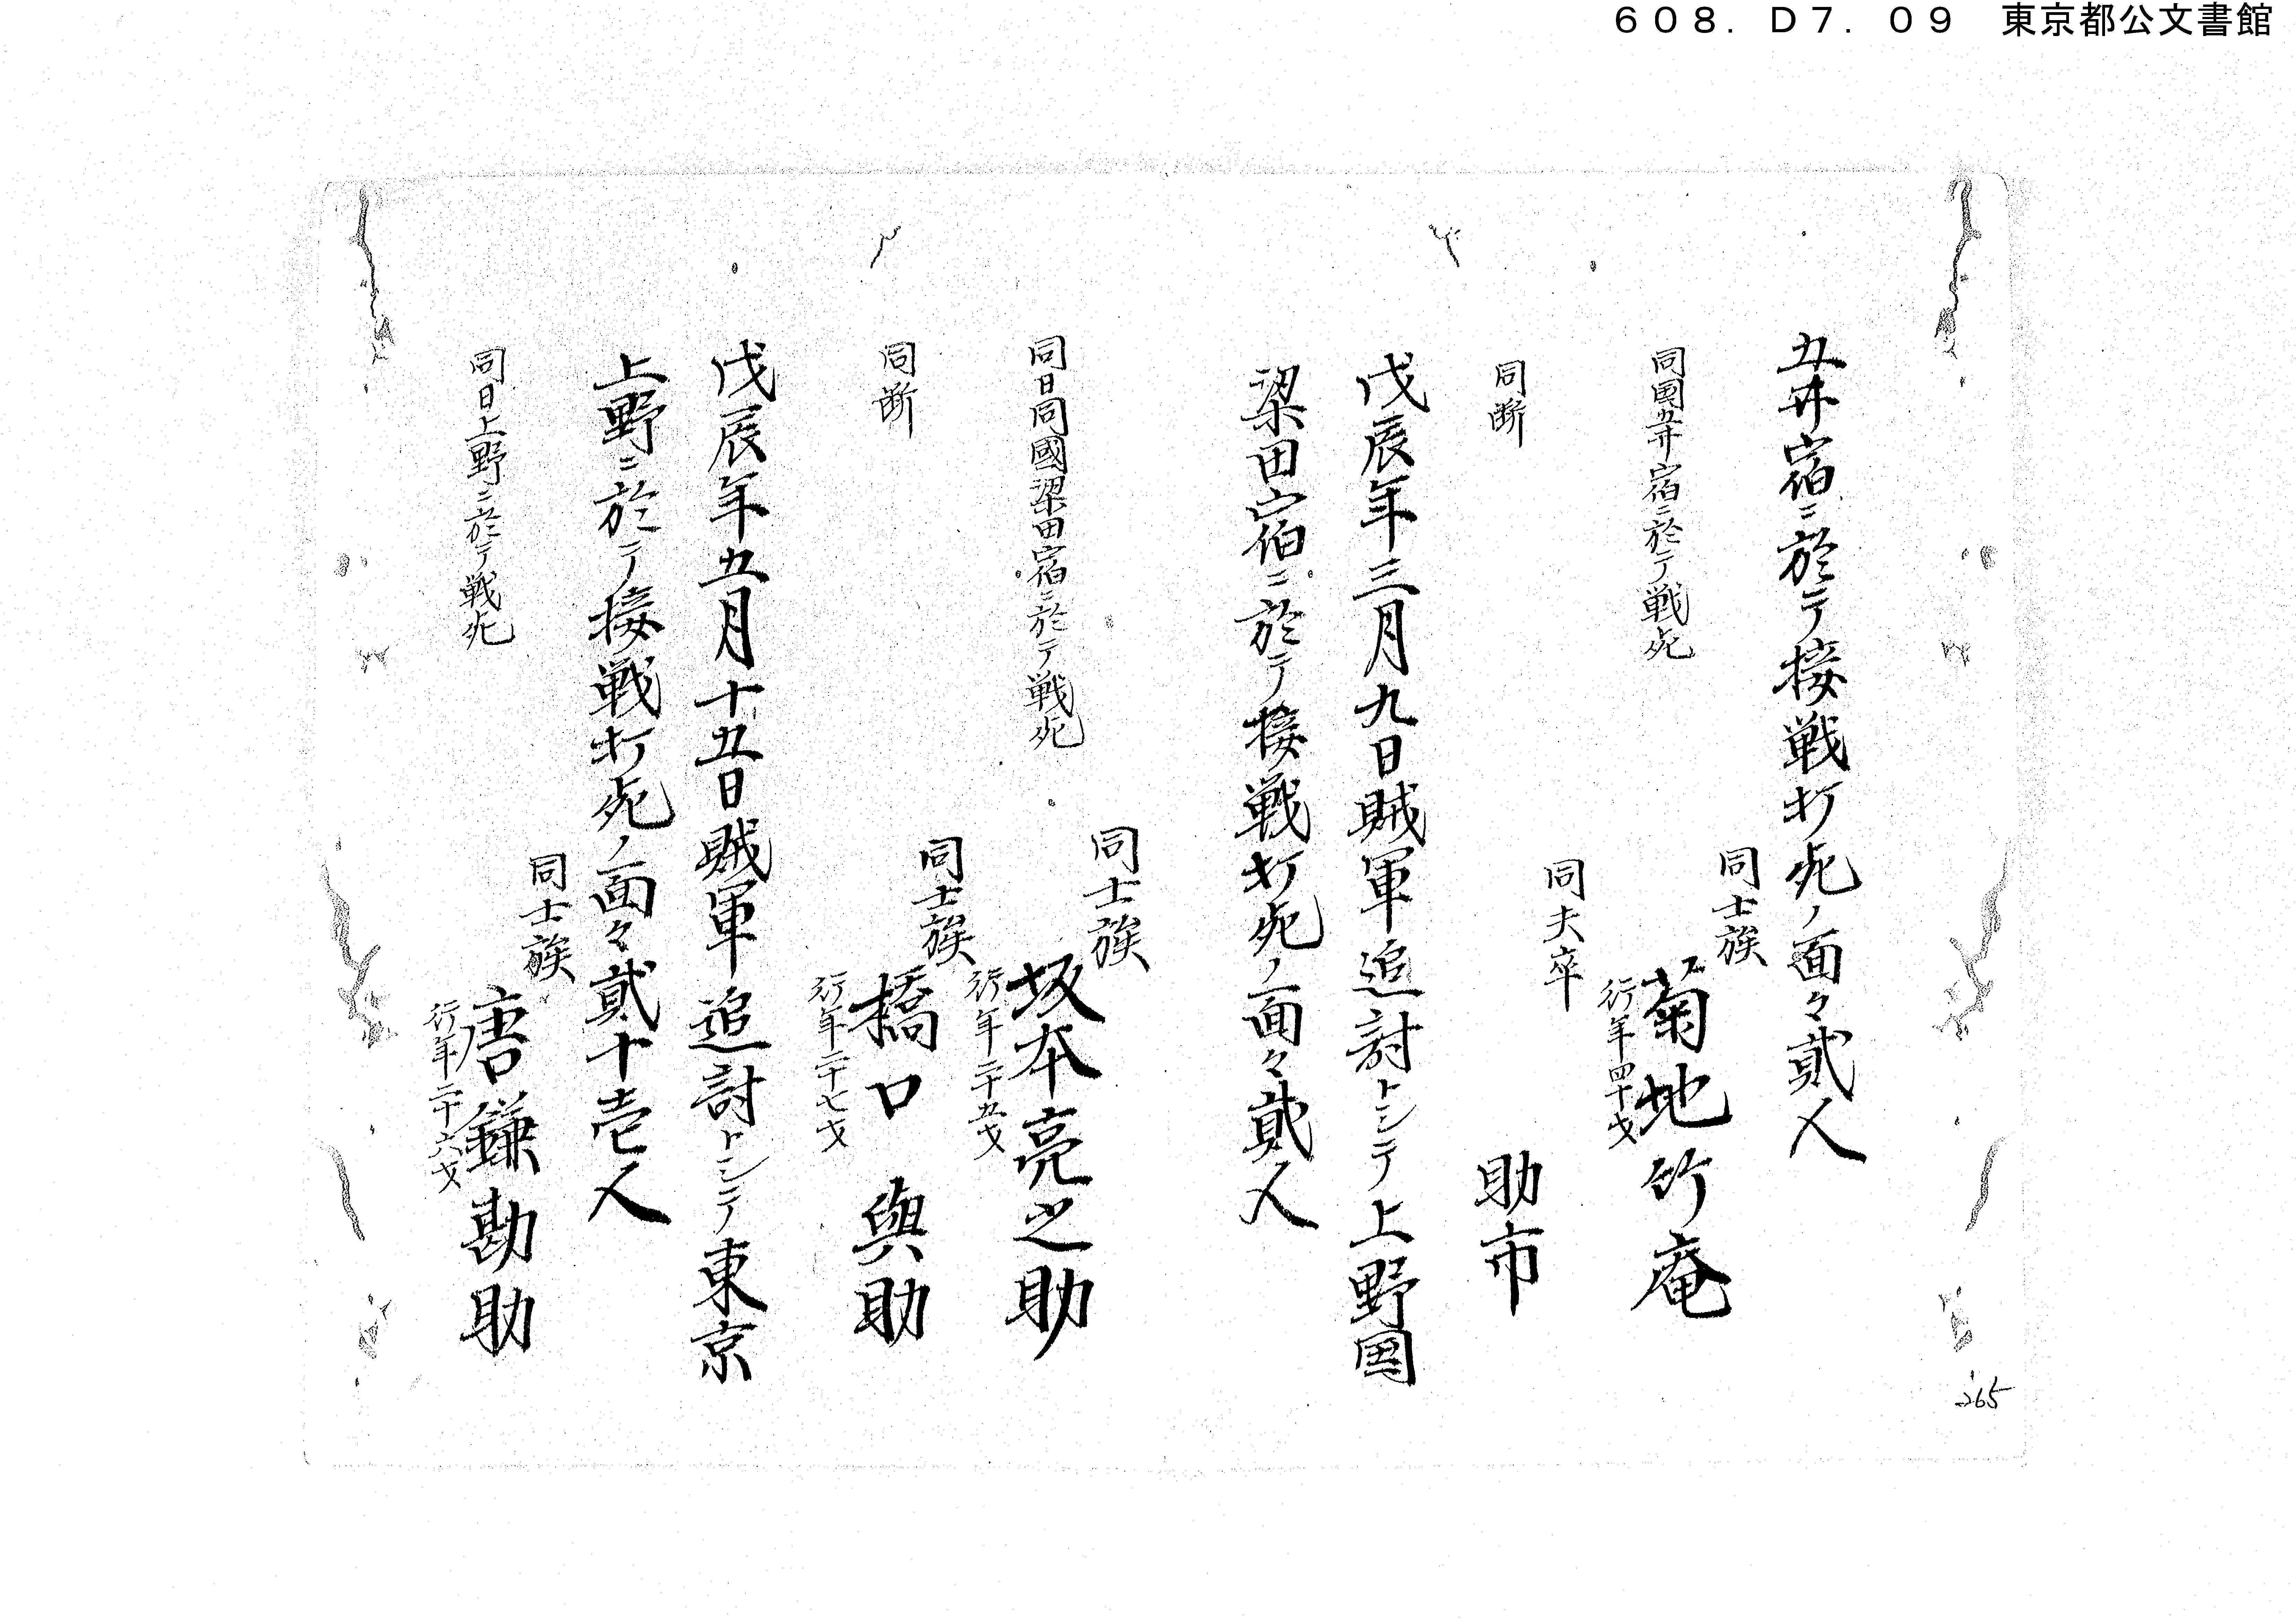 608.D7.09 東京都公文書館
五井宿ニ於テ接戦打死ノ面々貳人
同国五井宿ニ於テ戦死
同士族
菊地竹庵
行年四十才
同断
同夫卒
助市
戊辰年三月九日賊軍追討トシテ上野国
梁田宿ニ於テ接戦打死ノ面々貳人
同日同國梁田宿ニ於テ戦死
同士族
坂本亮之助
行年二十五才
同断
同士族
橋口與助
行年二十七才
戊辰年五月十五日賊軍追討トシテ東京
上野ニ於テ接戦打死ノ面々貳十壱人
同日上野ニ於テ戦死
同士族
唐鎌勘助
行年二十六才
265